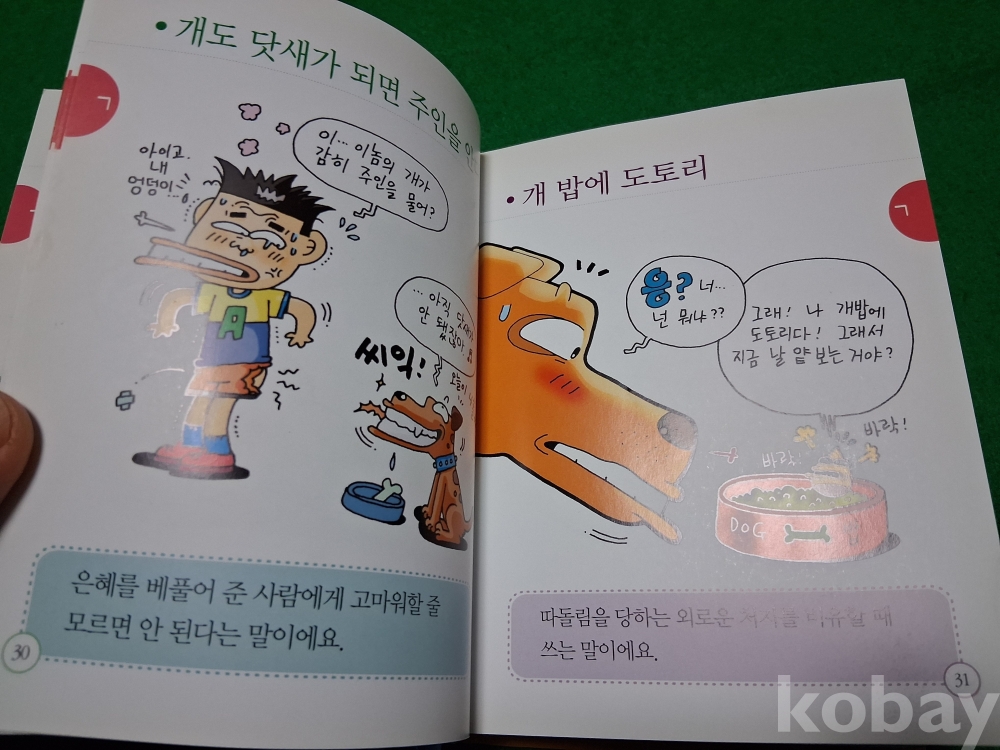 • 개도 닷새가 되면 주인을
ㄱ
아이고.
내
엉덩이...
이... 이놈의 개가
감히 주인을 물어?
... 아직 닷새가
안 됐잖아.
오늘이
씨익!
은혜를 베풀어 준 사람에게 고마워할 줄
모르면 안 된다는 말이에요.
30
• 개 밥에 도토리
ㄱ
응? 너...
넌 뭐냐??
그래! 나 개밥에
도토리다! 그래서
지금 날 얕보는 거야?
바락!
바락!
DOG
따돌림을 당하는 외로운 처지를 비유할 때
쓰는 말이에요.
31
kobay